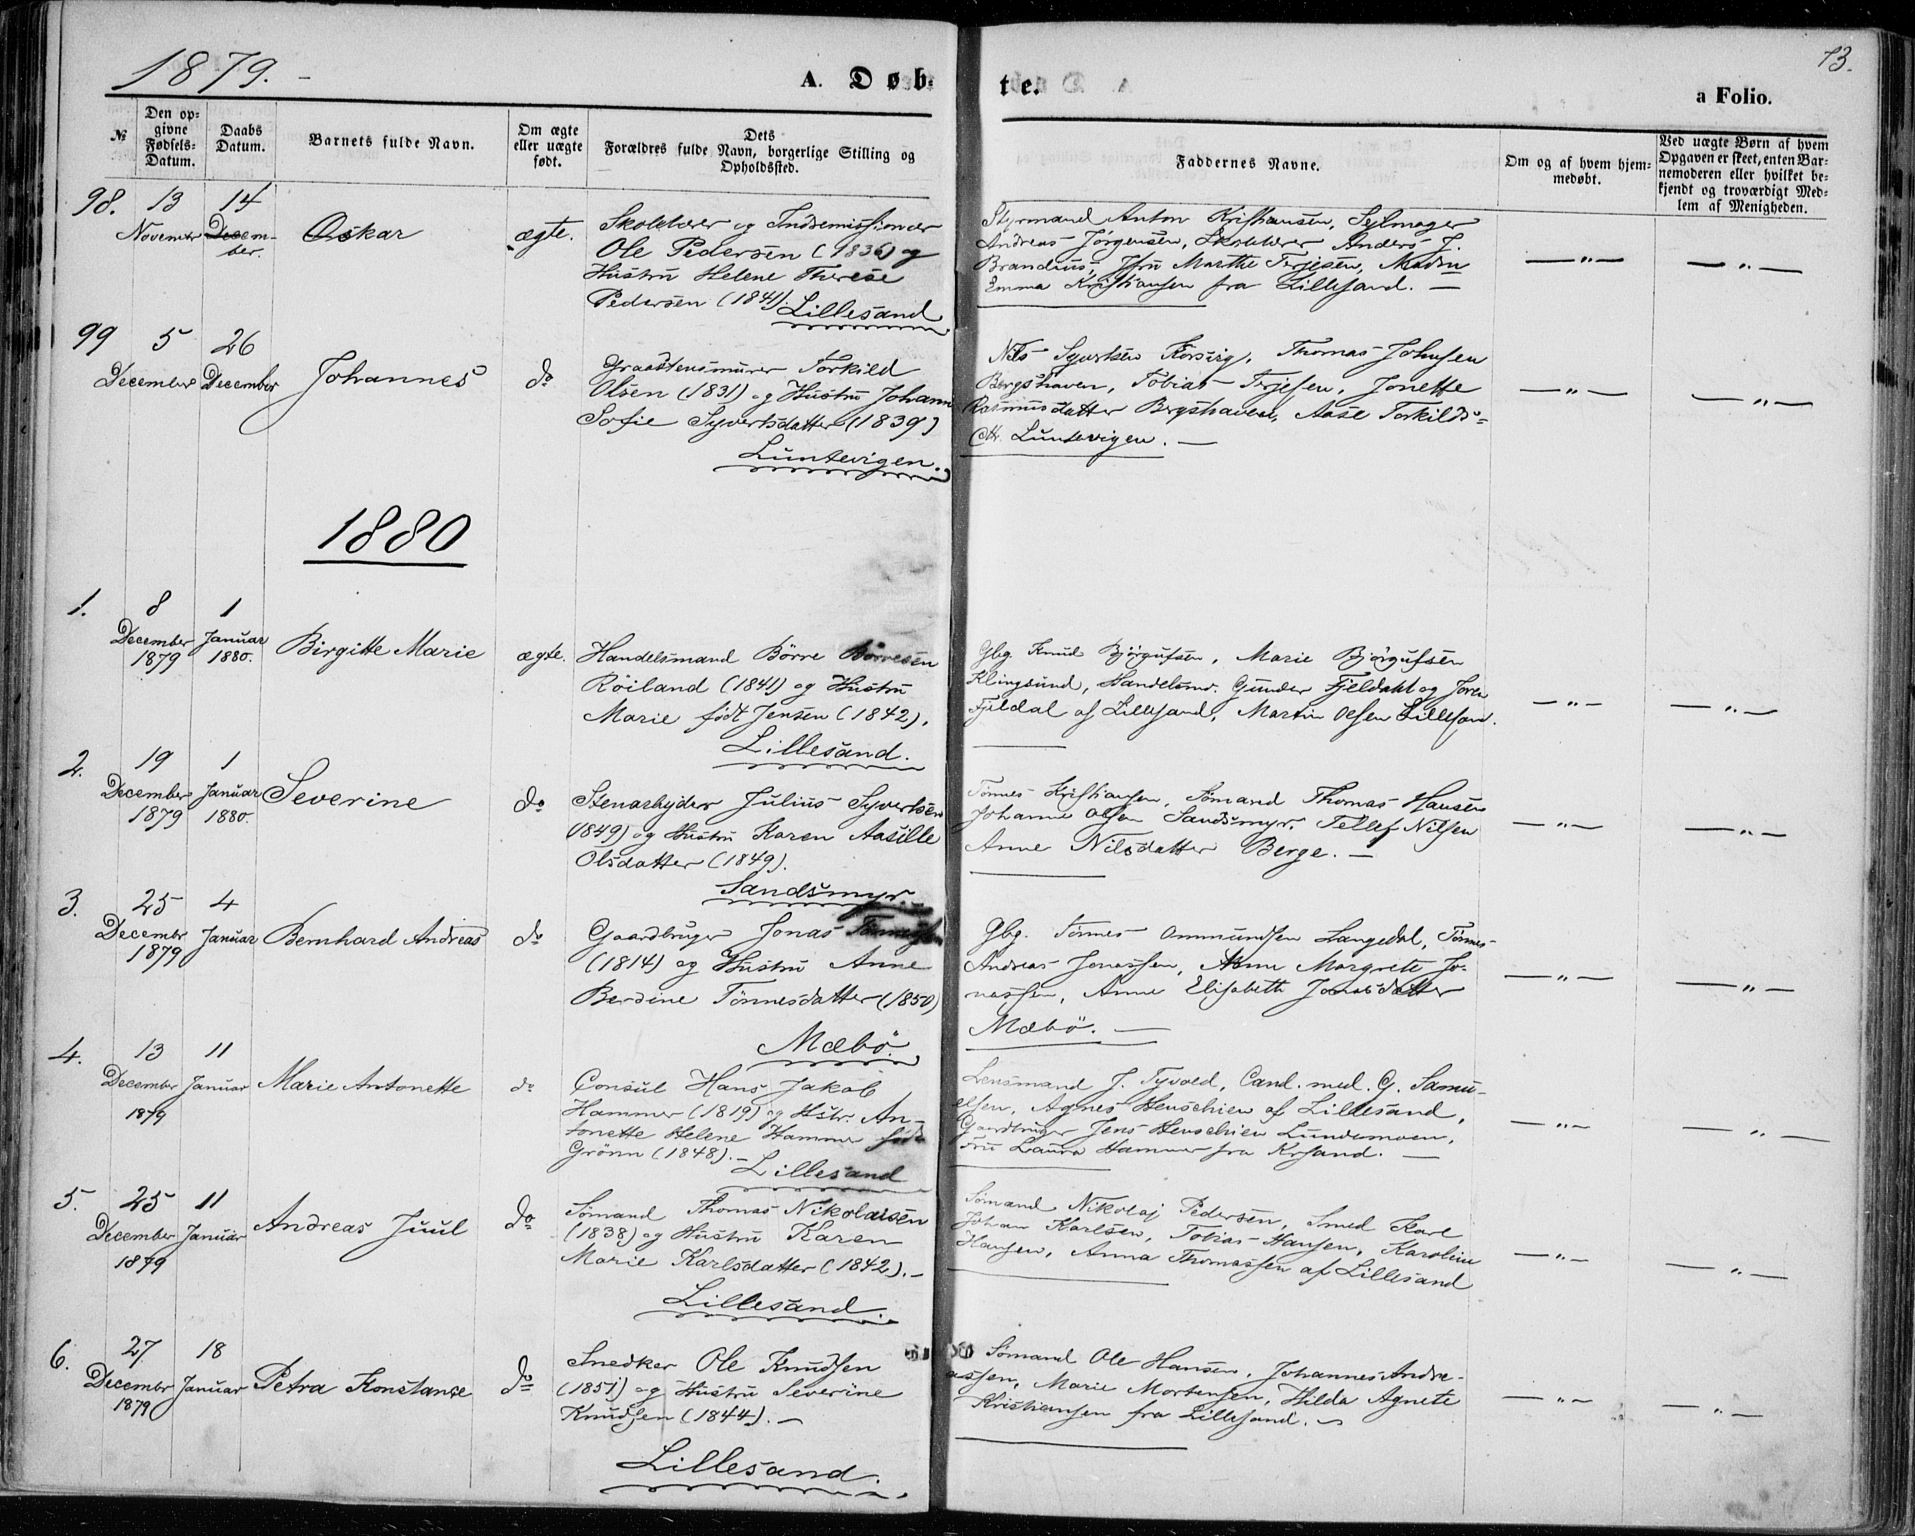 1879. -
A. Døb-
te.
73.
a Folio.
№
Den op-
givne
Fødsels-
Datum.
Daabs
Datum.
Barnets fulde Navn.
Om ægte
eller uægte
født.
Dets
Forældres fulde Navn, borgerlige Stilling og
Opholdssted.
Faddernes Navne.
Om og af hvem hjem-
medøbt.
Ved uægte Børn af hvem
Opgaven er skeet, enten Bar-
nemoderen eller hvilket be-
kjendt og troværdigt Med-
lem af Menigheden.
98.
13
November
14
Decem-
ber.
Oskar
ægte.
Skolelærer og Indremissionær
Ole Pedersen (1836) og
Hustru Helene Therese
Pedersen (1841).
Lillesand
Styrmand Anton Kristiansen, Seilmager
Andreas Jørgensen, Skolelærer Anders J.
Brandius, Marthe Terjesen, Madm
Emma Kristiansen fra Lillesand. —
— " —
— " —
99
5
December
26
December
Johannes
do
Graastensmurer Torkild
Olsen (1831) og Hustru Johanne
Sofie Syvertsdatter (1839)
Luntevigen.
Nils Syvertsen, Thomas Johnsen
Bergshaven, Tobias Terjesen, Jonette
Rasmusdatter Bergshaven, Aase Torkilds-
dtt. Luntevigen. —
— " —
— " —
1880
1.
8
December
1879
1
Januar
1880.
Birgitte Marie
ægte.
Handelsmand Börre Börresen
Röiland (1841) og Hustru
Marie født Jensen (1842).
Lillesand.
Gbg. Knud Bjørgufsen, Marie Bjørgufsen
Klingsund, Handelsmd. Gunder Fjeldahl og Joren
Fjeldal af Lillesand, Martin Olsen Lillesan.
— " —
— " —
2.
19
December
1879
1
Januar
1880.
Severine
do
Stenarbyder Julius Syvertsen
(1849) og Hustru Karen Aasille
Olsdatter (1849).
Sandsmyr.
Tønnes Kristiansen, Sømand Thomas Hansen
Johanne Olsen Sandsmyr. Tellef Nilsen
Anne Nilsdatter Berge. —
— " —
— " —
3.
25
Decembr
1879
4
Januar
Bernhard Andreas
do
Gaardbruger Jonas Tönnesen
(1814) og Hustru Anne
Berdine Tönnesdatter (1850)
Mæbö.
Gbg. Tönnes Ommundsen Langedal, Tønnes
Andreas Jonassen, Anne Margrete Jo-
nassen, Anne Elisabeth Jonasdatter
Mæbö. —
— " —
— " —
4.
13
December
1879
11
Januar
Marie Antonette
do
Consul Hans Jakob
Hammer (1819) og Hstr. An-
tonette Helene Hammer född
Grönn (1848). —
Lillesand
Lensmand J. Tyvold, Cand. med. G. Samu-
elsen, Agnes Henschien af Lillesand,
Gaardbruger Jens Henschien Lundemoen,
Fru Laura Hammer fra Krsand. —
— " —
— " —
5.
25
December
1879
11
Januar
Andreas Juul
do
Sömand Thomas Nikolaisen
(1838) og Hustru Karen
Marie Karlsdatter (1842). —
Lillesand.
Sømand Nikolaj Pedersen, Smed Karl
Johan Karlsen, Tobias Hansen, Karoline
Hansen, Anna Thomassen af Lillesand
— " —
— " —
6.
27
Decembr
1879
18
Januar
Petra Konstanse
do
Snedker Ole Knudsen
(1851) og Hustru Severine
Knudsen (1844). —
Lillesand.
Sømand Ole Hansen, Johannes Andre-
assen, Marie Mortensen, Hilda Agnete
Kristiansen fra Lillesand. —
— " —
— " —